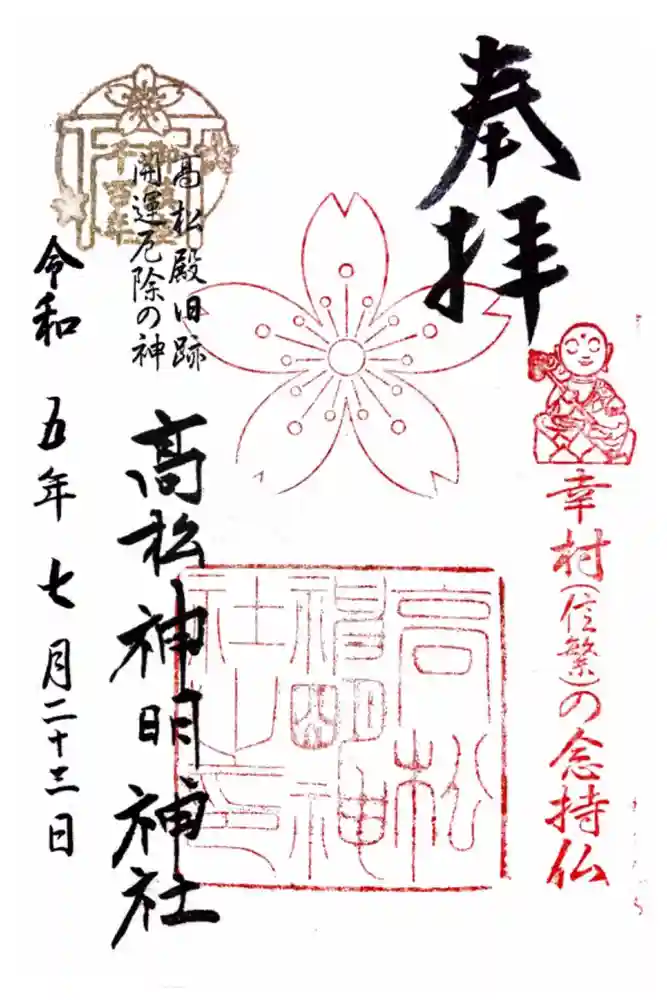 奉拝
幸村(信繁)の念持仏
高松
神明神
社之印
高松殿旧跡
開運厄除の神
高松神明神社
令和 五年 七月二十三日